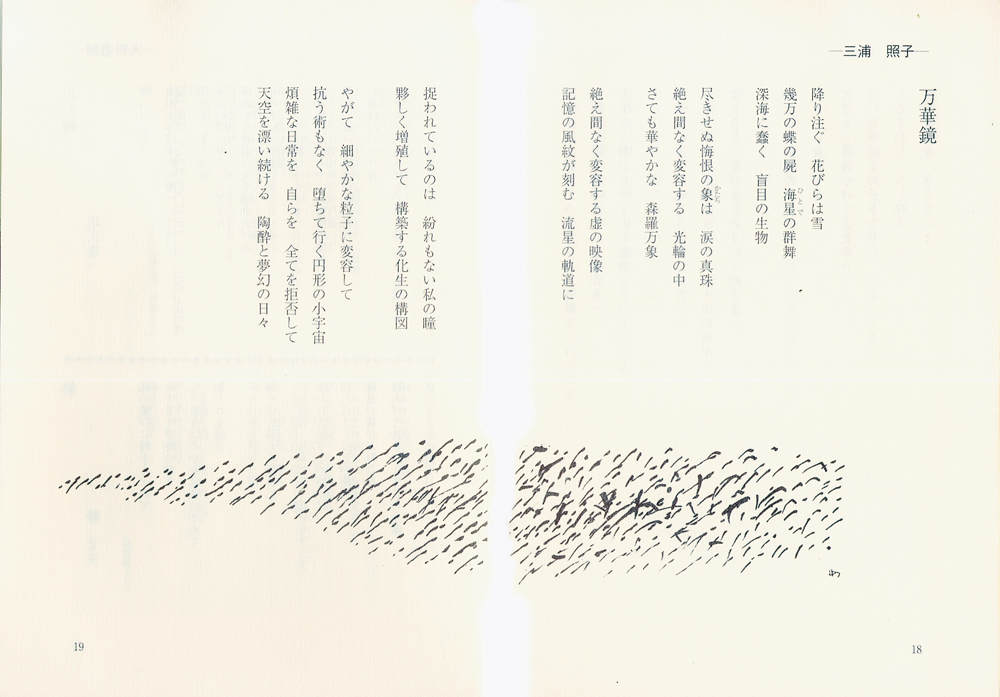 三浦　照子
万華鏡
降り注ぐ　花びらは雪
幾万の蝶の屍　海星の群舞
ひとで
深海に蠢く　盲目の生物
尽きせぬ悔恨の象は　涙の真珠
かたち
絶え間なく変容する　光輪の中
さても華やかな　森羅万象
絶え間なく変容する虚の映像
記憶の風紋が刻む　流星の軌道に
捉われているのは　紛れもない私の瞳
夥しく増殖して　構築する化生の構図
やがて　細やかな粒子に変容して
抗う術もなく　堕ちて行く円形の小宇宙
煩雑な日常を　自らを　全てを拒否して
天空を漂い続ける　陶酔と夢幻の日々
18
19